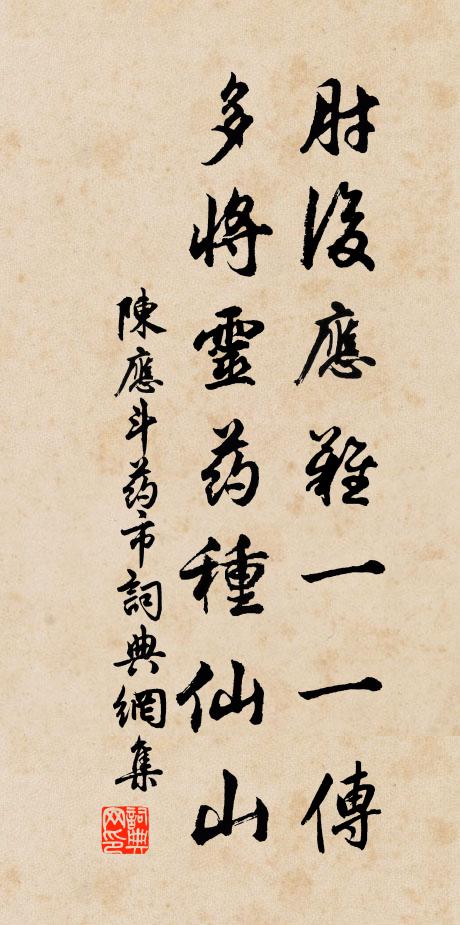 肘後應難一一傳
多將靈药種仙山
陳應斗药市詞典網集
詞典网印